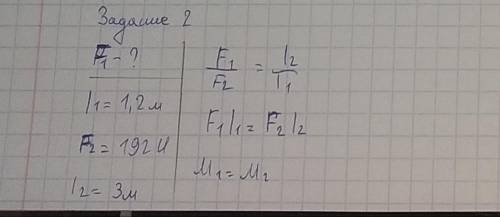 Задание 2
F₁ - ?
l₁ = 1,2 м
F₂ = 192 Н
l₂ = 3 м
F₁/F₂ = l₂/l₁
F₁l₁ = F₂l₂
M₁ = M₂